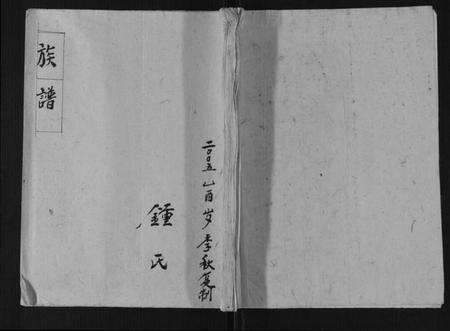 族譜
鍾氏
二〇〇五乙酉岁季秋复制